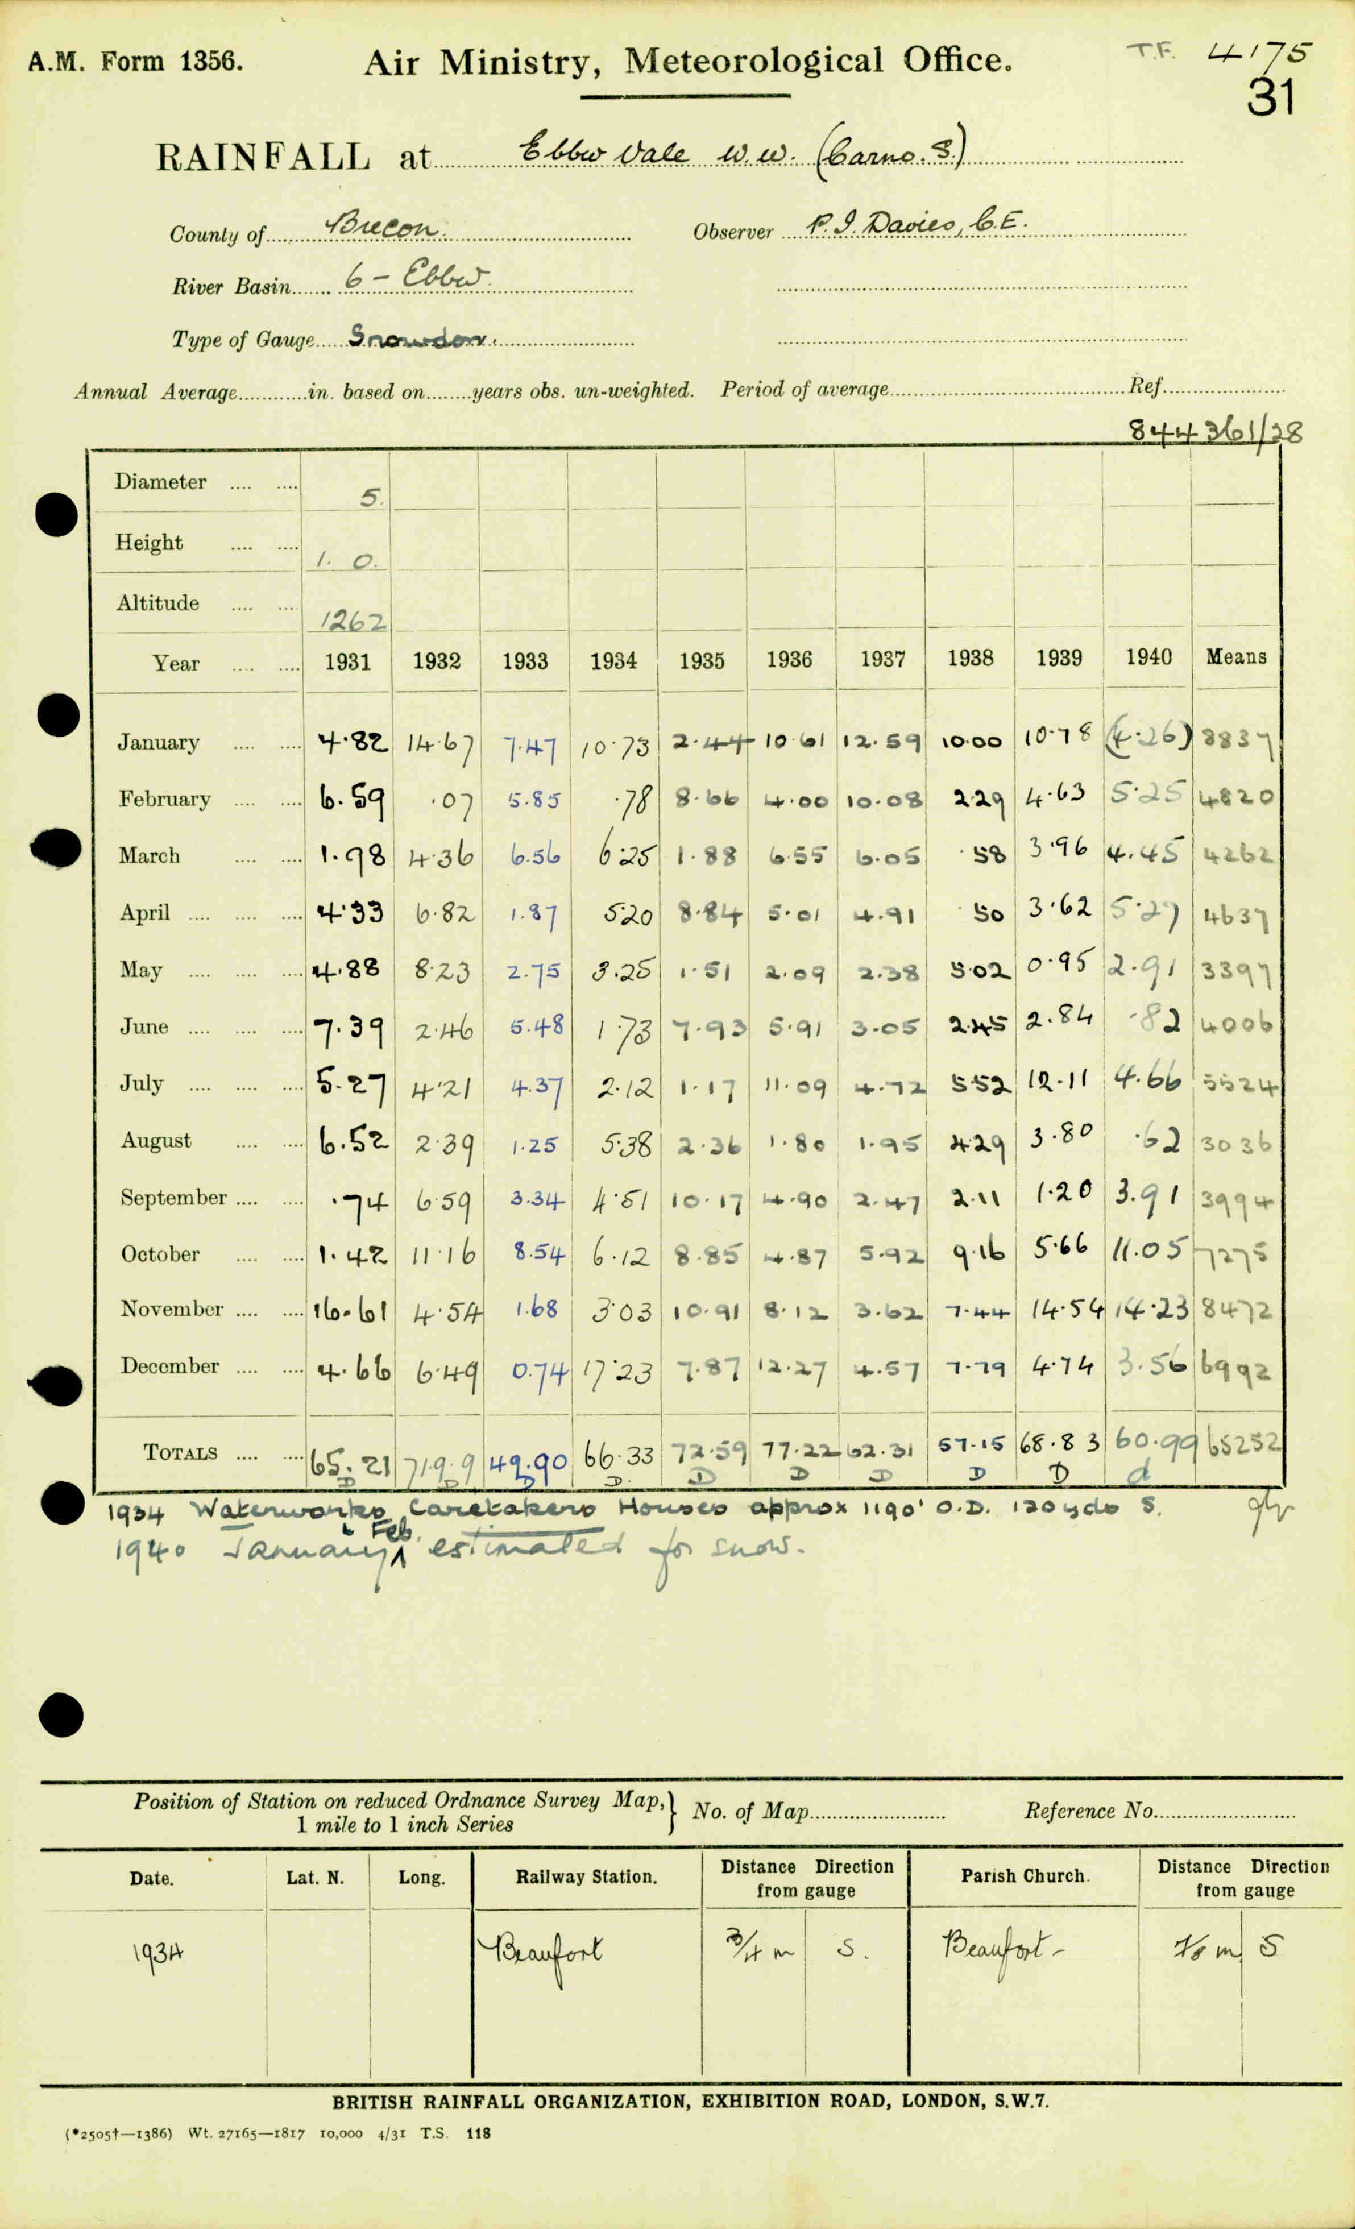 A.M. Form 1356. Air Ministry, Meteorological Office. T.F. 4175
31
RAINFALL at Ebbw Vale W.W. (Carno. S.)
County of Brecon. Observer P. I. Davies, C.E.
River Basin 6 - Ebbw.
Type of Gauge Snowdon.
Annual Average in. based on years obs. un-weighted. Period of average Ref.
844361/28
Diameter 5.
Height 1. 0.
Altitude 1262
Year 1931 1932 1933 1934 1935 1936 1937 1938 1939 1940 Means
January 4.82 14.67 7.47 10.73 2.44 10.61 12.59 10.00 10.78 (4.26) 8837
February 6.59 .07 5.85 .78 8.66 4.00 10.08 2.29 4.63 5.25 4820
March 1.98 4.36 6.56 6.25 1.88 6.55 6.05 .58 3.96 4.45 4262
April 4.33 6.82 1.87 5.20 8.84 5.01 4.91 .50 3.62 5.27 4637
May 4.88 8.23 2.75 3.25 1.51 2.09 2.38 5.02 0.95 2.91 3397
June 7.39 2.46 5.48 1.73 7.93 5.91 3.05 2.45 2.84 .82 4006
July 5.27 4.21 4.37 2.12 1.17 11.09 4.72 5.52 12.11 4.66 5524
August 6.52 2.39 1.25 5.38 2.36 1.80 1.95 4.29 3.80 .62 3036
September .74 6.59 3.34 4.51 10.17 4.90 2.47 2.11 1.20 3.91 3994
October 1.42 11.16 8.54 6.12 8.85 4.87 5.92 9.16 5.66 11.05 7275
November 16.61 4.54 1.68 3.03 10.91 8.12 3.62 7.44 14.54 14.23 8472
December 4.66 6.49 0.74 17.23 7.87 12.27 4.57 7.79 4.74 3.56 6992
TOTALS 65.21 71.99 49.90 66.33 72.59 77.22 62.31 57.15 68.83 60.99 65252
D D D D. D D D D D d
1934 Waterworks Caretakers Houses approx 1190' O.D. 120 yds S.
1940 January & Feb. estimated for snow.
Position of Station on reduced Ordnance Survey Map, 1 mile to 1 inch Series } No. of Map Reference No.
Date. Lat. N. Long. Railway Station. Distance Direction from gauge Parish Church. Distance Direction from gauge
1934 Beaufort 3/4 m S. Beaufort - 7/8 m S
BRITISH RAINFALL ORGANIZATION, EXHIBITION ROAD, LONDON, S.W.7.
(*2505†—1386) Wt. 27165—1817 10,000 4/31 T.S. 118